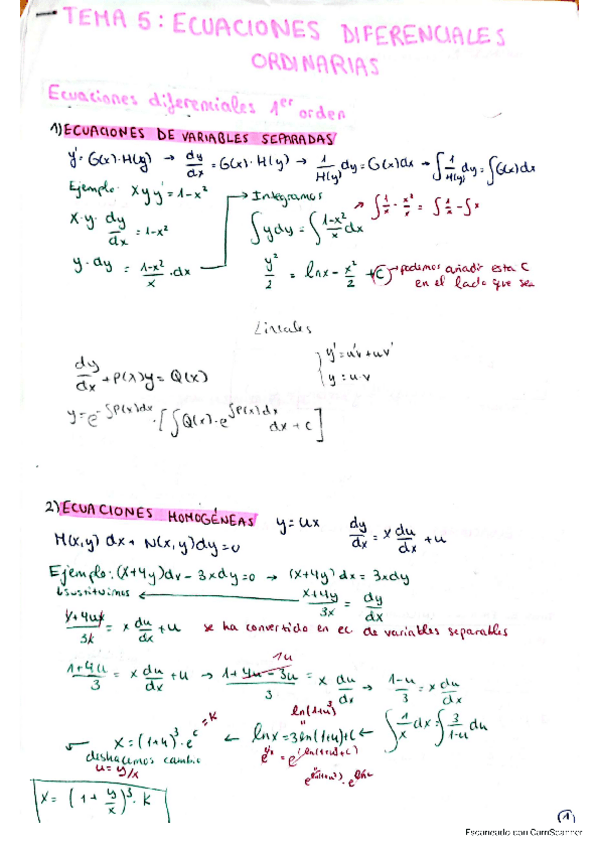 – TEMA 5: ECUACIONES DIFERENCIALES
ORDINARIAS
Ecuaciones diferenciales 1er orden
1) ECUACIONES DE VARIABLES SEPARADAS
y' = G(x)·H(y) → dy/dx = G(x)·H(y) → 1/H(y) dy = G(x)dx → ∫1/H(y) dy = ∫G(x)dx
Ejemplo: xyy' = 1-x²
→ Integramos
→ ∫1/x - x²/x = ∫1/x - ∫x
x·y·dy/dx = 1-x²
∫ydy = ∫(1-x²)/x dx
y·dy = (1-x²)/x ·dx
y²/2 = lnx - x²/2 + C → podemos añadir esta C
en el lado que sea
Lineales
dy/dx + P(x)y = Q(x)
y' = u'v + uv'
y = u·v
y = e^(-∫P(x)dx)·[∫Q(x)·e^(∫P(x)dx) dx + C]
2) ECUACIONES HOMOGÉNEAS y = ux dy/dx = x du/dx + u
M(x,y) dx + N(x,y)dy = 0
Ejemplo: (x+4y)dx - 3xdy = 0 → (x+4y)dx = 3xdy
sustituimos ← (x+4y)/3x = dy/dx
(x+4ux)/3x = x du/dx + u se ha convertido en ec. de variables separables
(1+4u)/3 = x du/dx + u → (1+4u-3u)/3 = x du/dx → (1-u)/3 = x du/dx
1u
ln(1+u)³
x = (1+u)³·e^c = K ← lnx = 3ln(1+u)+C ← ∫1/x dx = ∫3/(1-u) du
deshacemos cambio
u = y/x
x = (1 + y/x)³·K
1
Escaneado con CamScanner